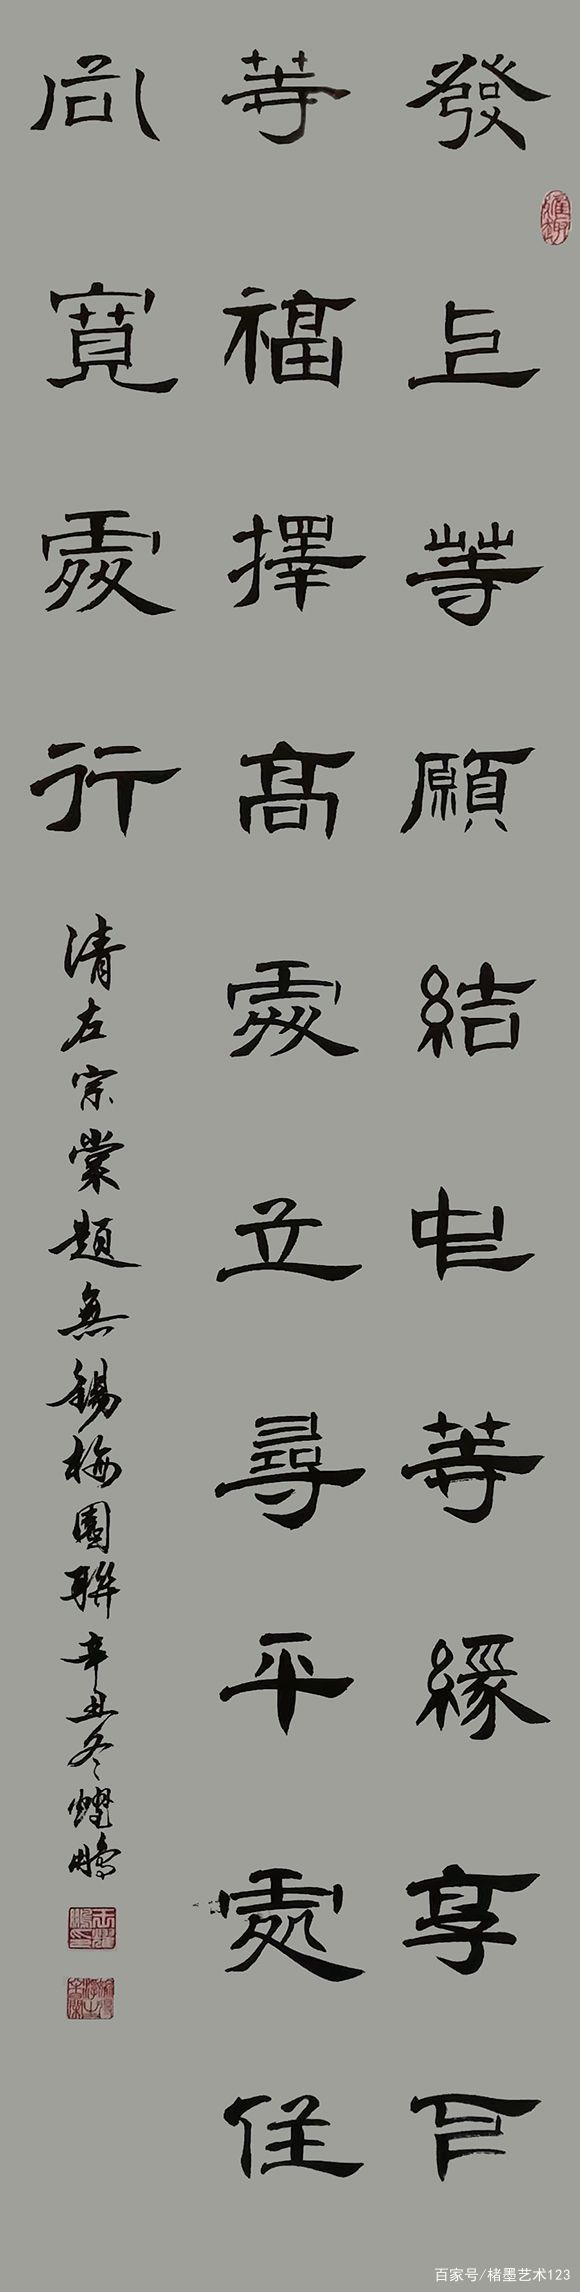 發上等願結中等緣享下
等福擇高處立尋平處住
向寬處行
清左宗棠題無錫梅園聯辛丑冬燿鵬
百家号/楮墨艺术123